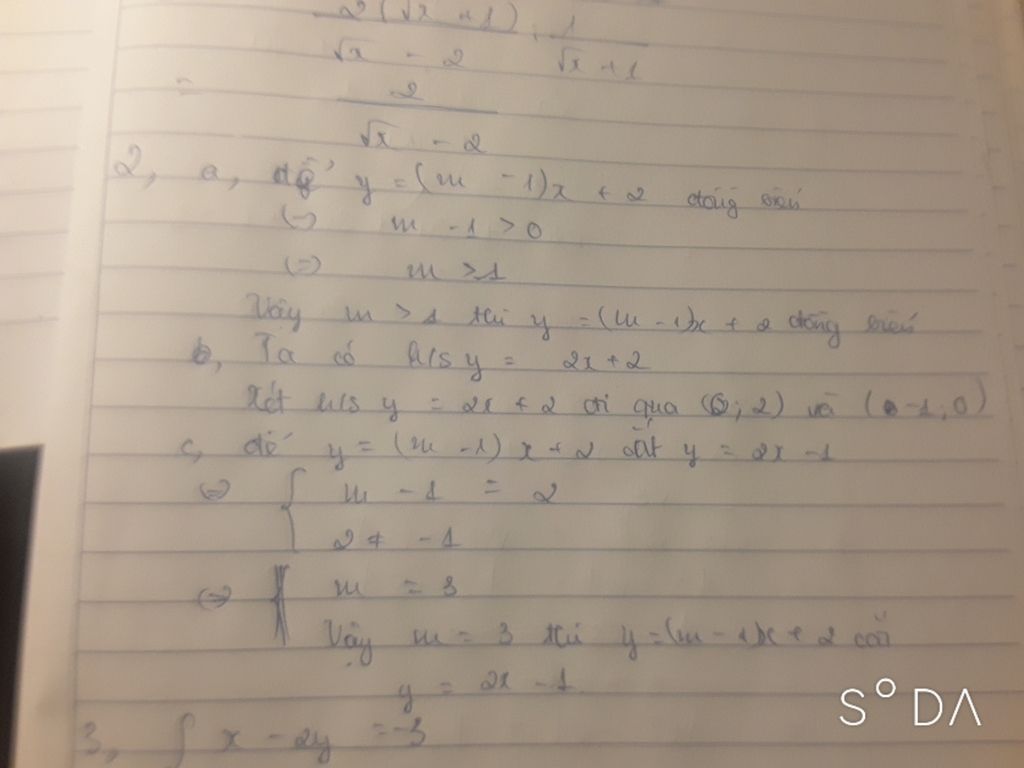 2(√x + 1) . 1
√x - 2 √x + 1
= 2
√x - 2
2, a, để y = (m - 1)x + 2 đồng biến
(=) m - 1 > 0
(=) m > 1
Vậy m > 1 thì y = (m - 1)x + 2 đồng biến
b, Ta có h/s y = 2x + 2
Xét h/s y = 2x + 2 đi qua (0; 2) và (-1; 0)
c, để y = (m - 1)x + 2 cắt y = 2x - 1
(=) { m - 1 = 2
2 ≠ -1
(=) m = 3
Vậy m = 3 thì y = (m - 1)x + 2 cắt
y = 2x - 1
3, { x - 2y = -3
S°DA